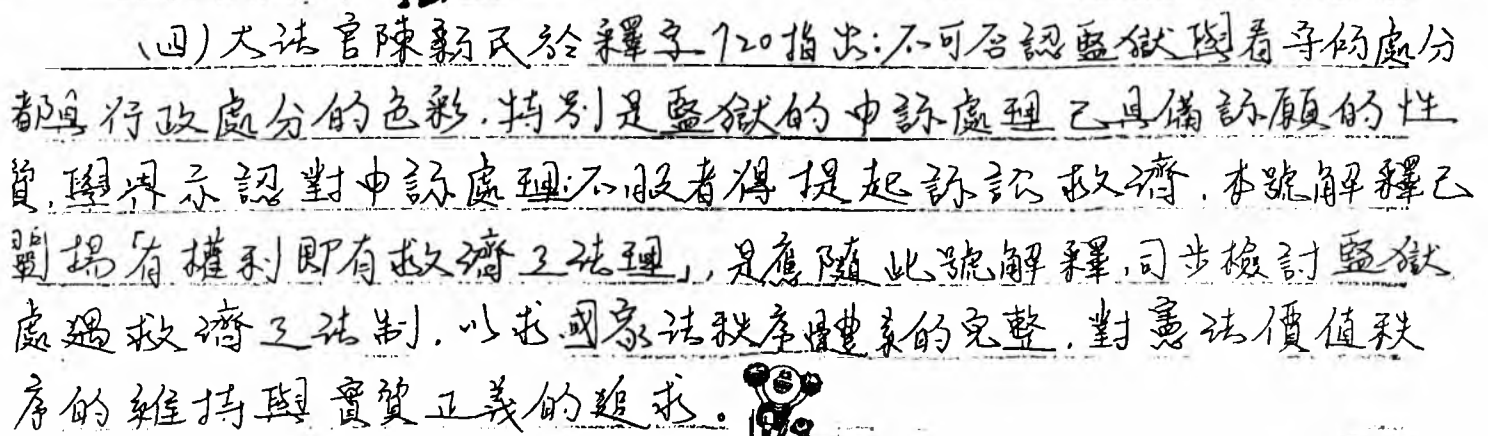 (四)大法官陳新民於釋字720指出:不可否認監獄與看守所處分
都具行政處分的色彩.特別是監獄的申訴處理已具備訴願的性
質,學界亦認對申訴處理不服者得提起訴訟救濟.本號解釋已
闡揚「有權利即有救濟之法理」,是應隨此號解釋,同步檢討監獄
處遇救濟之法制.以求國家法秩序體系的完整.對憲法價值秩
序的維持與實質正義的追求。